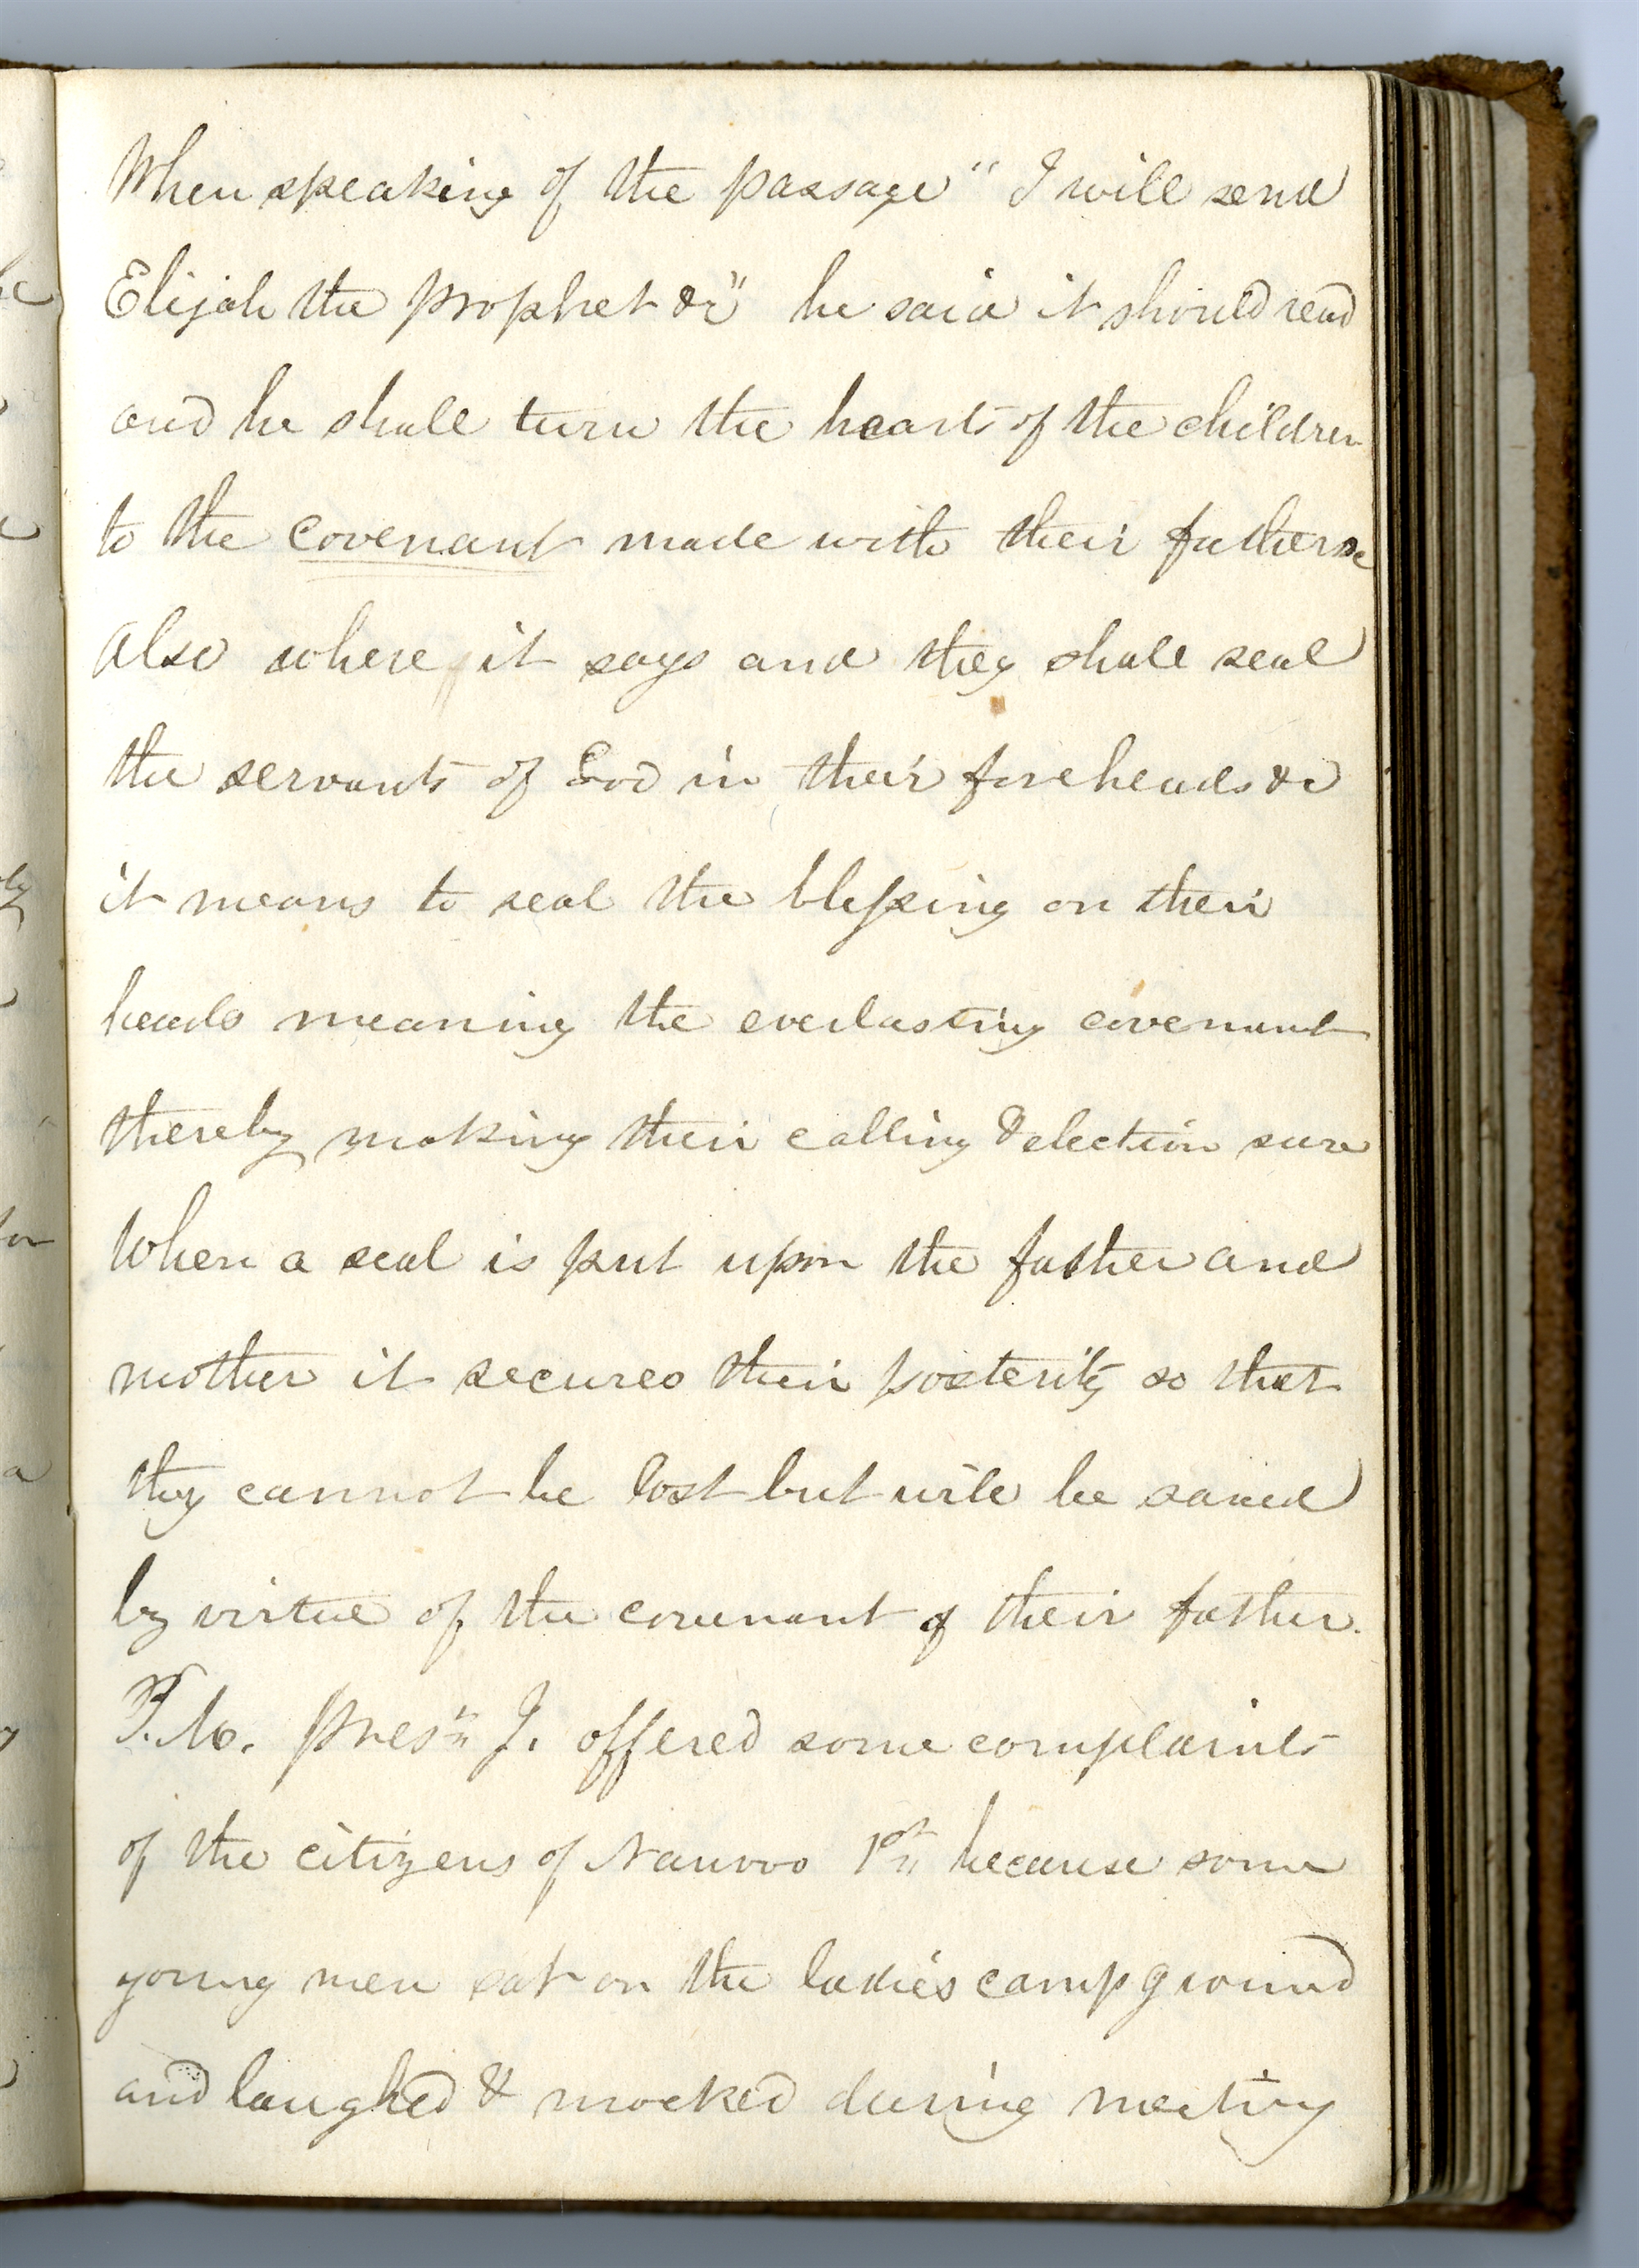 When speaking of the passage "I will send
Elijah the prophet &c" he said it should read
and he shall turn the hearts of the children
to the covenant made with their fathers
Also where it says and they shall seal
the servants of God in their foreheads &c
it means to seal the blessing on their
heads meaning the everlasting covenant
thereby making their calling & election sure
When a seal is put upon the father and
mother it secures their posterity so that
they cannot be lost but will be saved
by virtue of the covenant of their father.
P.M. Presᵗ J. offered some complaints
of the citizens of Nauvoo 1ˢᵗ because some
young men sat on the ladies camp ground
and laughed & mocked during meeting